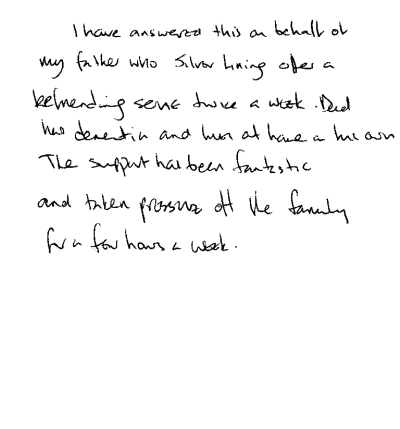 I have answered this on behalf of
my father who Silver Lining offer a
befriending service twice a week. Dad
has dementia and lives at home on his own
The support has been fantastic
and taken pressure off the family
for a few hours a week.